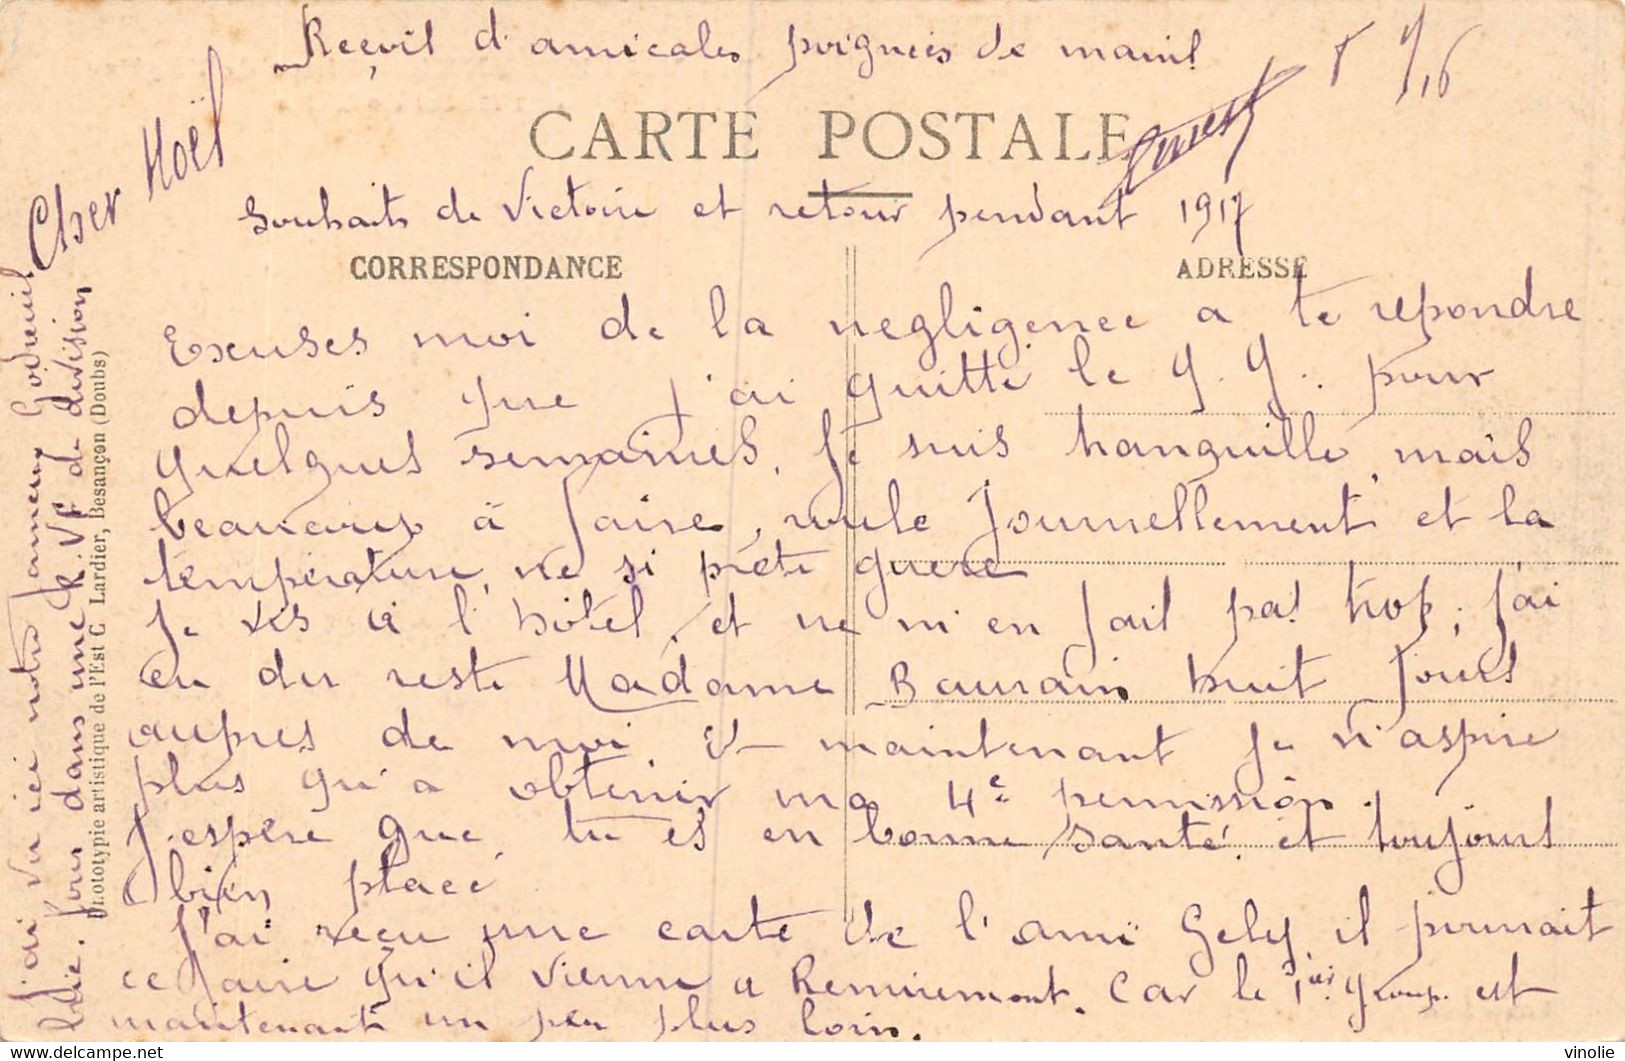 Reçoit d'amicales poignées de mains
Ernest
CARTE POSTALE
Cher Noël
Souhaits de Victoire et retour pendant 1917
CORRESPONDANCE
ADRESSE
Excuses moi de la negligence a te repondre
depuis que j'ai quitté le G. G. pour
quelques semaines. Je suis tranquille, mais
beaucoup à faire, roule journellement et la
température, ne si prète guere
Je vis à l'hôtel, et ne m'en fait pas trop, j'ai
eu du reste Madame Baurain huit jours
aupres de moi et maintenant je n'aspire
plus qu'a obtenir ma 4e permission.
J'espère que tu es en bonne santé et toujours
bien placé
J'ai reçu une carte de l'ami Gely il
ce faire qu'il vienne a Remiremont. Car le Groupe est
maintenant un peu plus loin.
J'ai vu ici notre fameux
dans une R.V.F de division
Phototypie artistique de l'Est C. Lardier, Besançon (Doubs)
vinolie